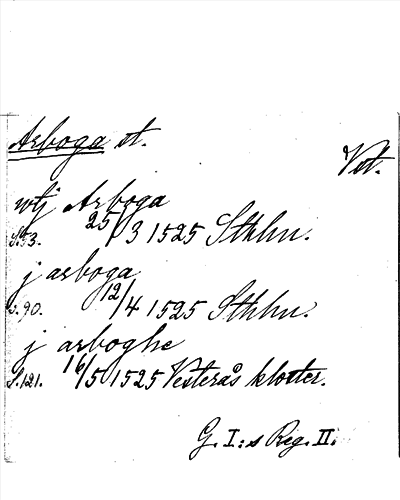 Arboga st.
Vst.
wtj Arboga
S.53. 25/3 1525 Sthlm.
j arboga
s.90. 12/4 1525 Sthlm.
j arboghe
S.121. 16/5 1525 Vesterås kloster.
G. I:s Reg. II.